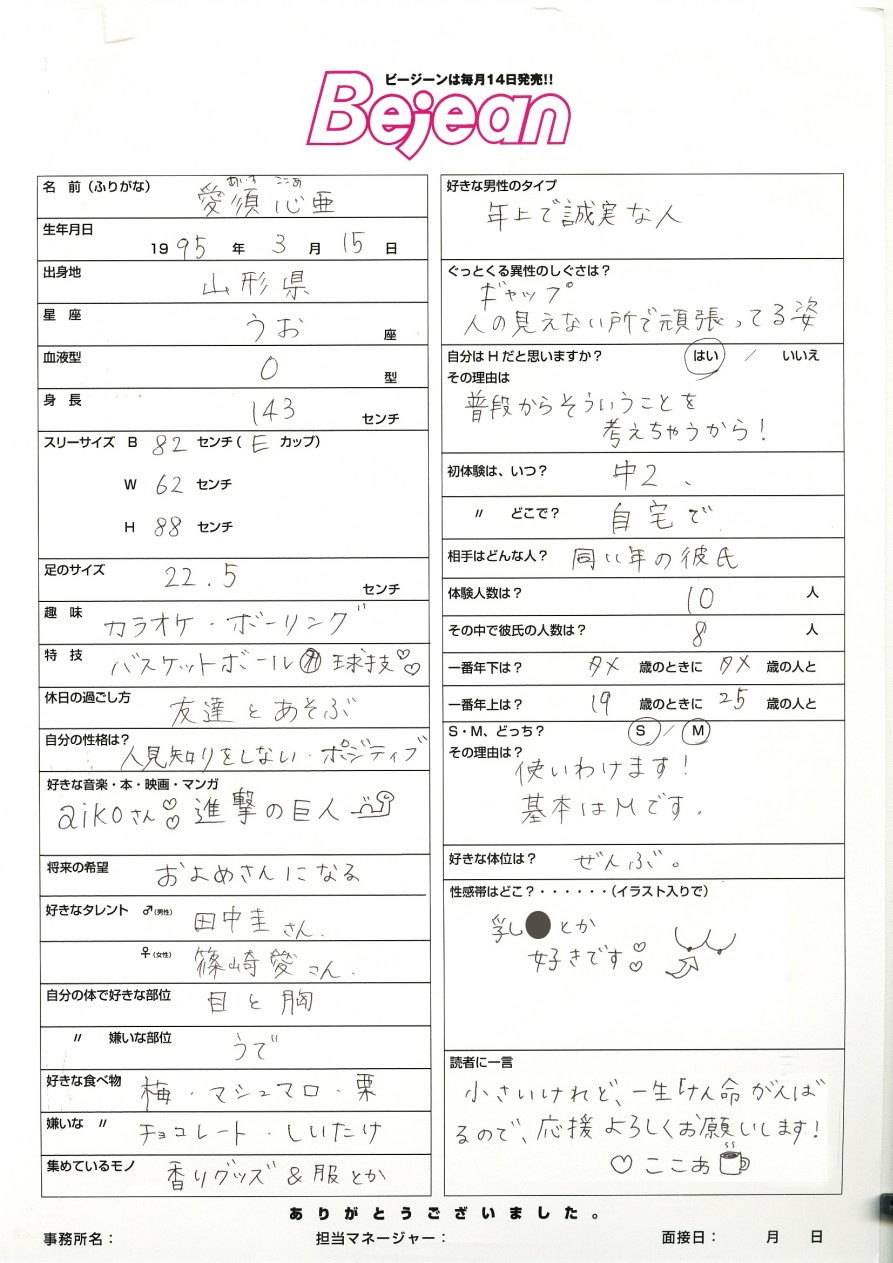 ビージーンは毎月14日発売!!
Bejean
名 前（ふりがな）
あいす ここあ
愛須 心亜
生年月日
19 95 年 3 月 15 日
出身地 山形県
星 座 うお 座
血液型 O 型
身 長 143 センチ
スリーサイズ B 82 センチ（ E カップ）
W 62 センチ
H 88 センチ
足のサイズ 22.5 センチ
趣 味 カラオケ・ボーリング
特 技 バスケットボール 球技♡♡
休日の過ごし方 友達とあそぶ
自分の性格は？ 人見知りをしない・ポジティブ
好きな音楽・本・映画・マンガ
aikoさん♡♡ 進撃の巨人
将来の希望 およめさんになる
好きなタレント ♂(男性) 田中圭さん.
♀(女性) 篠崎愛さん.
自分の体で好きな部位 目と胸
〃 嫌いな部位 うで
好きな食べ物 梅・マシュマロ・栗
嫌いな 〃 チョコレート・しいたけ
集めているモノ 香りグッズ&服とか
好きな男性のタイプ
年上で誠実な人
ぐっとくる異性のしぐさは？
ギャップ
人の見えない所で頑張ってる姿
自分はHだと思いますか？ はい ／ いいえ
その理由は
普段からそういうことを
考えちゃうから！
体験人数は？ 10 人
その中で彼氏の人数は？ 8 人
一番年下は？ タメ 歳のときに タメ 歳の人と
一番年上は？ 19 歳のときに 25 歳の人と
S・M、どっち？ S ／ M
その理由は？
使いわけます！
基本はMです.
好きな体位は？ ぜんぶ。
性感帯はどこ？・・・・・・（イラスト入りで）
乳し●とか
好きです♡♡
読者に一言
小さいけれど、一生けん命がんば
るので、応援よろしくお願いします！
♡ここあ
ありがとうございました。
事務所名： 担当マネージャー： 面接日： 月 日